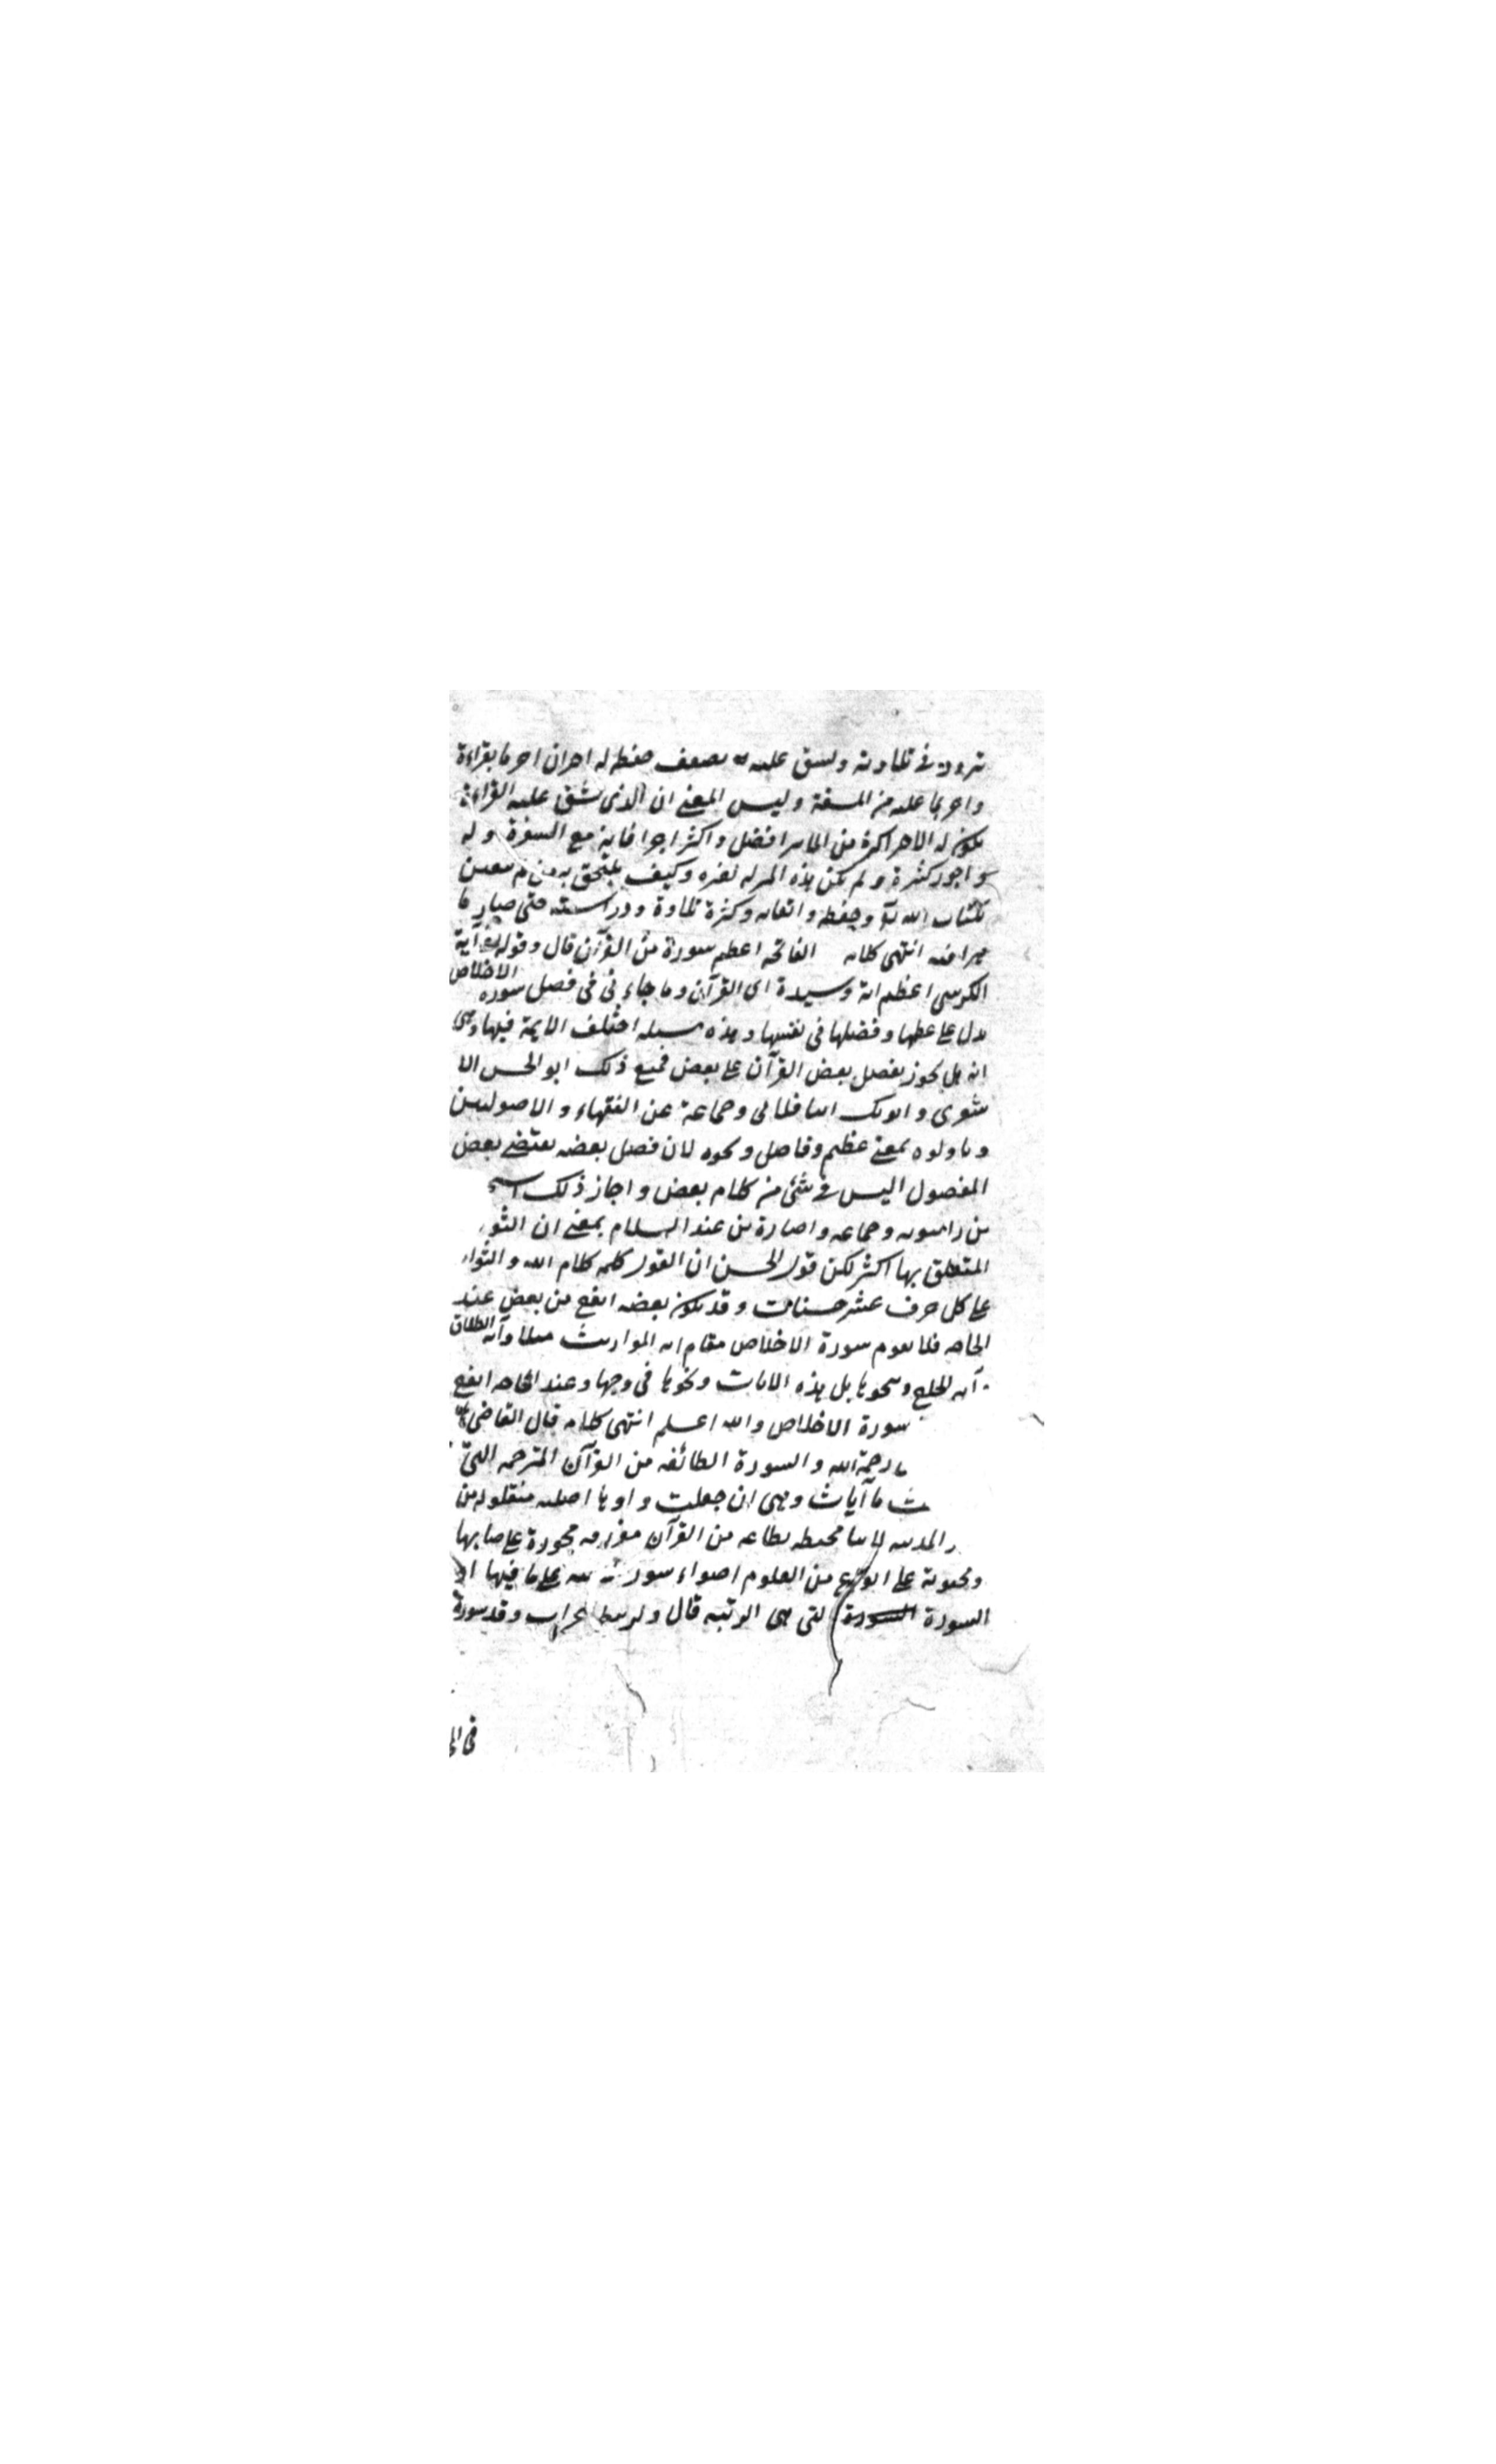 تردد في تلاوته ويشق عليه لضعف حفظه له اجران اجر ما بقراءة
واجر بما عليه من المشقة وليس المعنى ان الذي شق عليه القراءة
يكون له الاجر اكثر من الماهر افضل واكثر اجرا فانه مع السفرة وله
واجور كثيرة ولم تكن هذه المنزلة لغيره وكيف يلتحق به من لم يعتن
بكتاب الله وحفظه واتقانه وكثرة تلاوة ودراسته حتى صار ما
هرا فيه انتهى كلامه الفاتحة اعظم سورة من القرآن قال وقوله آية
الكرسي اعظم اية وسيدة اي القرآن وما جاء في في فضل سورة الاخلاص
يدل على عظمها وفضلها في نفسها وهذه مسئلة اختلف الايمة فيها وهي
انه هل يجوز تفضيل بعض القرآن على بعض فمنع ذلك ابو الحسن الا
شعري وابو بكر الباقلاني وجماعة عن الفقهاء والاصوليين
وتاولوه بمعنى عظيم وفاضل ونحوه لان فضل بعضه يقتضي بعض
المفضول اليس في شئ من كلام بعض واجاز ذلك
بن راهويه وجماعة عند السلام بمعنى ان الثو
المتعلق بها اكثر لكن قول الحسن ان القول كله كلام الله والثوا
على كل حرف عشر حسنات وقد يكون بعضه انفع من بعض عند
الحاجة فلا تقوم سورة الاخلاص مقام اية المواريث مثلا وآية الطلاق
آية الخلع ونحوها بل هذه الايات ونحوها في وجهها وعند الحاجة انفع
سورة الاخلاص والله اعلم انتهى كلامه قال القاضي
رحمة الله والسورة الطائفة من القرآن المترجمة التي
ث ما آيات وهي ان جعلت واوها اصلية منقولة من
ر المدينة لانها محيطة بطائفة من القرآن مفرزة محوزة على
ومحتوية على انواع من العلوم سور على ما فيها او
السورة التي هي الرتبة قال وقد سورة
في ال